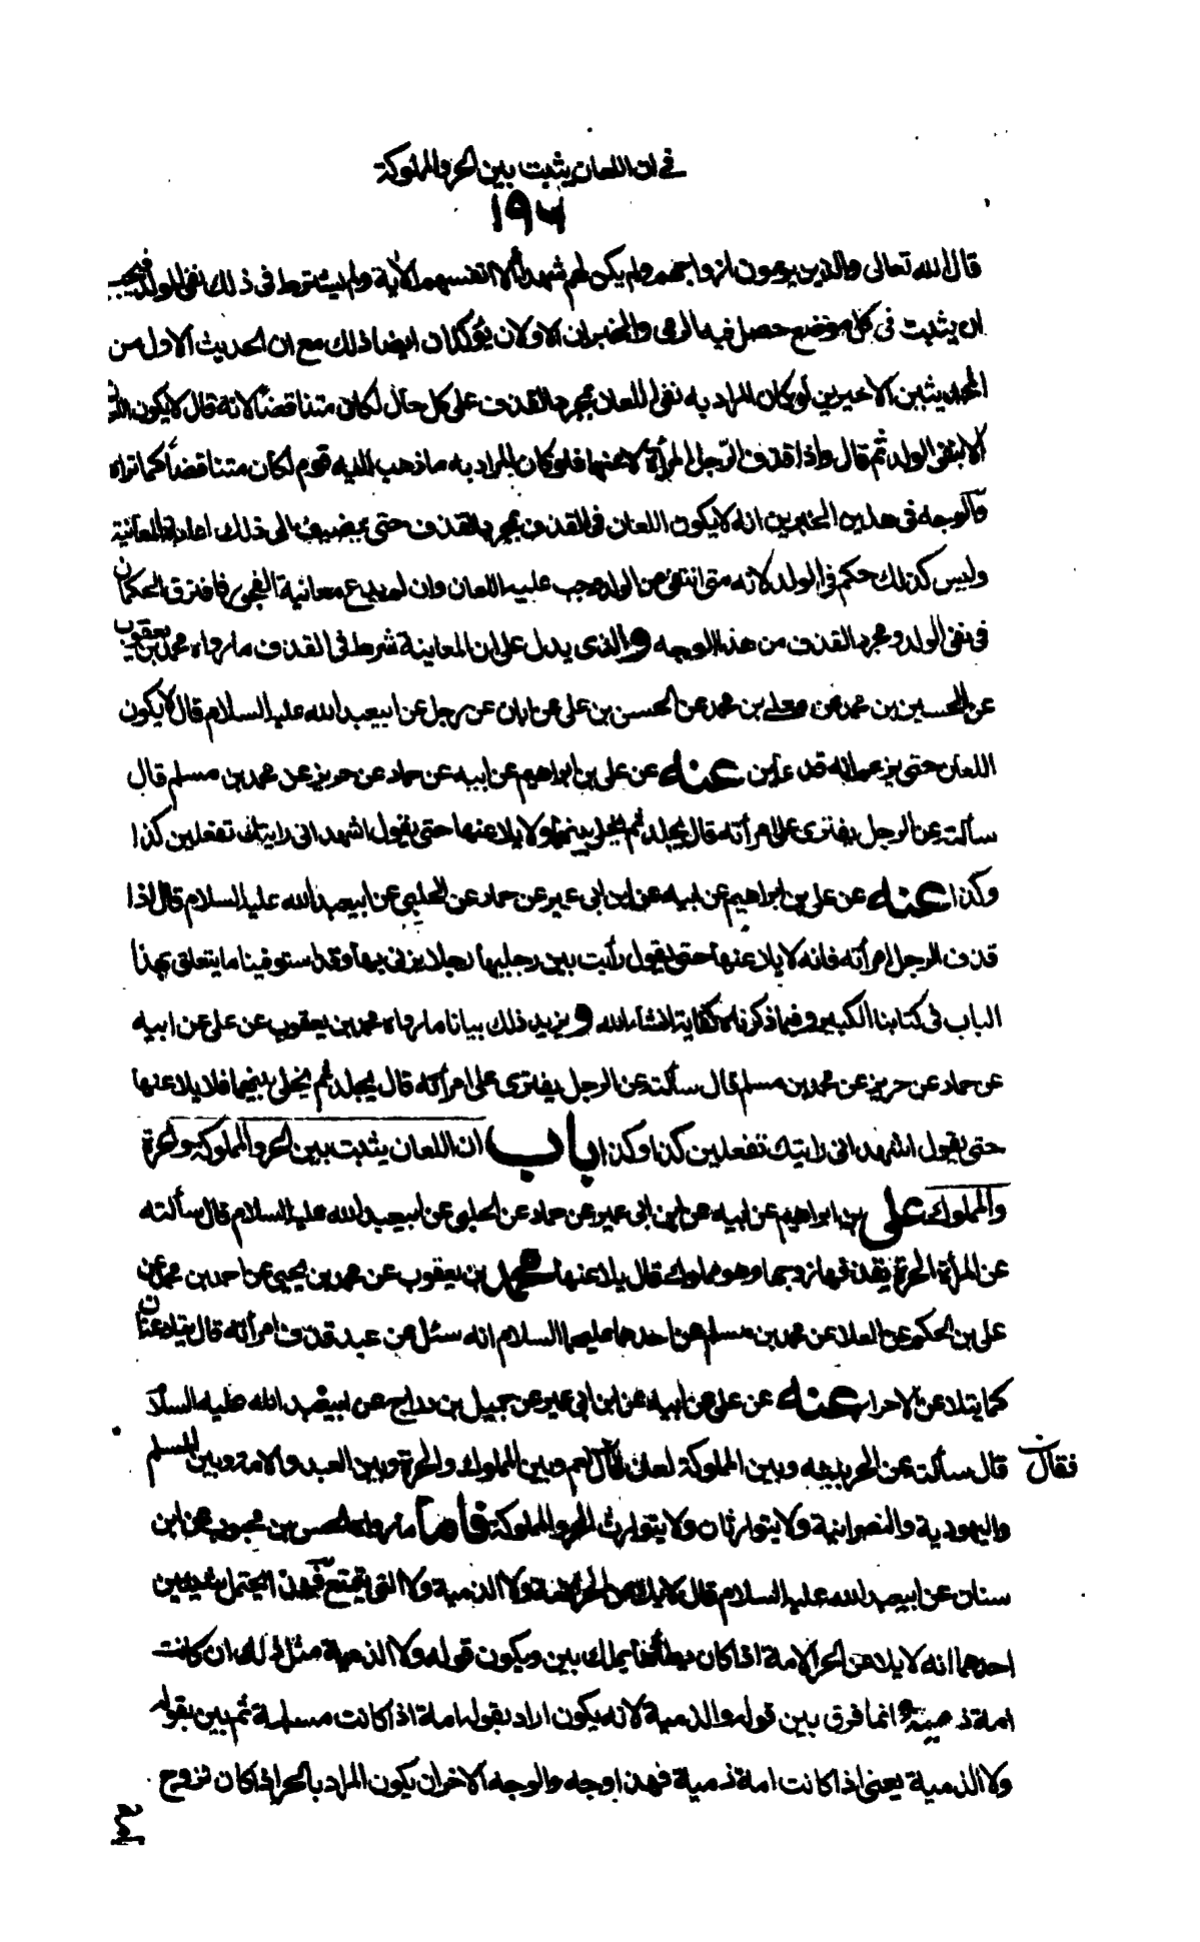 في ان اللعان يثبت بين الحر والمملوكة
١٩٦
قال الله تعالى والذين يرمون ازواجهم ولم يكن لهم شهداء الا انفسهم الآية ولم يشترط في ذلك نفى الولد فيجب
ان يثبت في كل موضع حصل فيه الرمى والخبران الاولان يؤكدان ايضا ذلك مع ان الحديث الاول من
الحديثين الاخيرين لو كان المراد به نفى اللعان بمجرد القذف على كل حال لكان متناقضاً لانه قال لا يكون اللعان
الا بنفى الولد ثم قال واذا قذف الرجل امرأته لاعنها فلو كان المراد به ما ذهب اليه قوم لكان متناقضاً كما تراه
والوجه في هذين الخبرين انه لا يكون اللعان في القذف بمجرد القذف حتى يضيف الى ذلك ادعاء المعاينة
وليس كذلك حكم في الولد لانه متى انتفى من الولد وجب عليه اللعان وان لم يدع معاينة الفجور فافترق الحكمان
في نفى الولد ومجرد القذف من هذا الوجه والذى يدل على ان المعاينة شرط في القذف ما رواه محمد بن يعقوب
عن الحسين بن محمد عن معلى بن محمد عن الحسن بن على عن ابان عن رجل عن ابيعبد الله عليه السلام قال لا يكون
اللعان حتى يزعم انه قد عاين عنه عن على بن ابراهيم عن ابيه عن حماد عن حريز عن محمد بن مسلم قال
سألته عن الرجل يفترى على امرأته قال يجلد ثم يخلى بينهما ولا يلاعنها حتى يقول اشهد انى رايتك تفعلين كذا
وكذا عنه عن على بن ابراهيم عن ابيه عن ابن ابى عمير عن حماد عن الحلبى عن ابيعبد الله عليه السلام قال اذا
قذف الرجل امرأته فانه لا يلاعنها حتى يقول رأيت بين رجليها رجلا يزنى بها وقد استوفينا ما يتعلق بهذا
الباب في كتابنا الكبير وفيما ذكرناه كفاية انشاء الله ويزيد ذلك بيانا ما رواه محمد بن يعقوب عن على عن ابيه
عن حماد عن حريز عن محمد بن مسلم قال سألته عن الرجل يفترى على امرأته قال يجلد ثم يخلى بينهما فلا يلاعنها
حتى يقول اشهد انى رايتك تفعلين كذا وكذا باب ان اللعان يثبت بين الحر والمملوكة والحرة
والمملوك على بن ابراهيم عن ابيه عن ابن ابى عمير عن حماد عن الحلبى عن ابيعبد الله عليه السلام قال سألته
عن المرأة الحرة يقذفها زوجها وهو مملوك قال يلاعنها محمد بن يعقوب عن محمد بن يحيى عن احمد بن محمد عن
على بن الحكم عن العلا عن محمد بن مسلم عن احدهما عليهما السلام انه سئل عن عبد قذف امرأته قال يتلاعنان
كما يتلاعن الاحرار عنه عن على عن ابيه عن ابن ابى عمير عن جميل بن دراج عن ابيعبد الله عليه السلا
قال سألته عن الحر بينه وبين المملوكة لعان قال نعم وبين المملوك والحرة وبين العبد والامة وبين المسلم
فقال
واليهودية والنصرانية ولا يتوارثان ولا يتوارث الحر والمملوكة فاما ما رواه الحسن بن محبوب عن ابن
سنان عن ابيعبد الله عليه السلام قال لا يلاعن الحر الامة ولا الذمية ولا التى يتمتع فهذا يحتمل شيئين
احدهما انه لا يلاعن الحر الامة اذا كان يطأها بملك يمين ويكون قوله ولا الذمية مثل ذلك ان كانت
امة ذمية وانما فرق بين قوله والذمية لانه يكون اراد بقوله امة اذا كانت مسلمة ثم بين بقوله
ولا الذمية يعنى اذا كانت امة ذمية فهذا وجه والوجه الاخر ان يكون المراد بالحر اذا كان تزوج